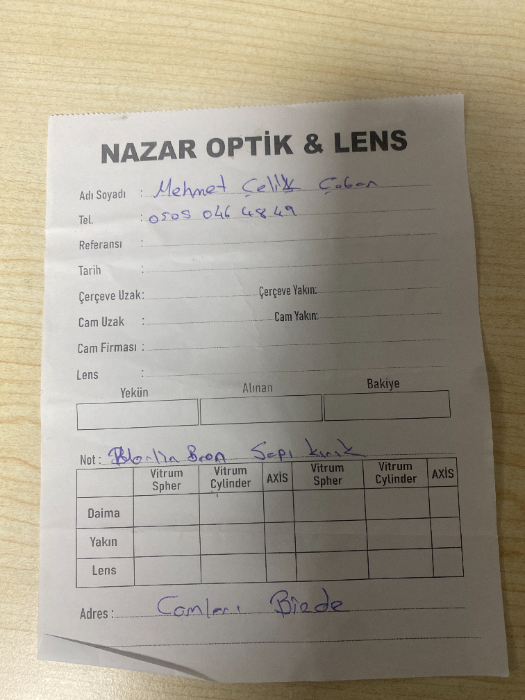 NAZAR OPTİK & LENS
Adı Soyadı : Mehmet Çelik Çoban
Tel. : 0505 046 48 49
Referansı :
Tarih :
Çerçeve Uzak: Çerçeve Yakın:
Cam Uzak : Cam Yakın:
Cam Firması :
Lens :
Yekün Alınan Bakiye
Not : Sapı kırık
Vitrum Spher Vitrum Cylinder AXİS Vitrum Spher Vitrum Cylinder AXİS
Daima
Yakın
Lens
Adres : Camları Bizde